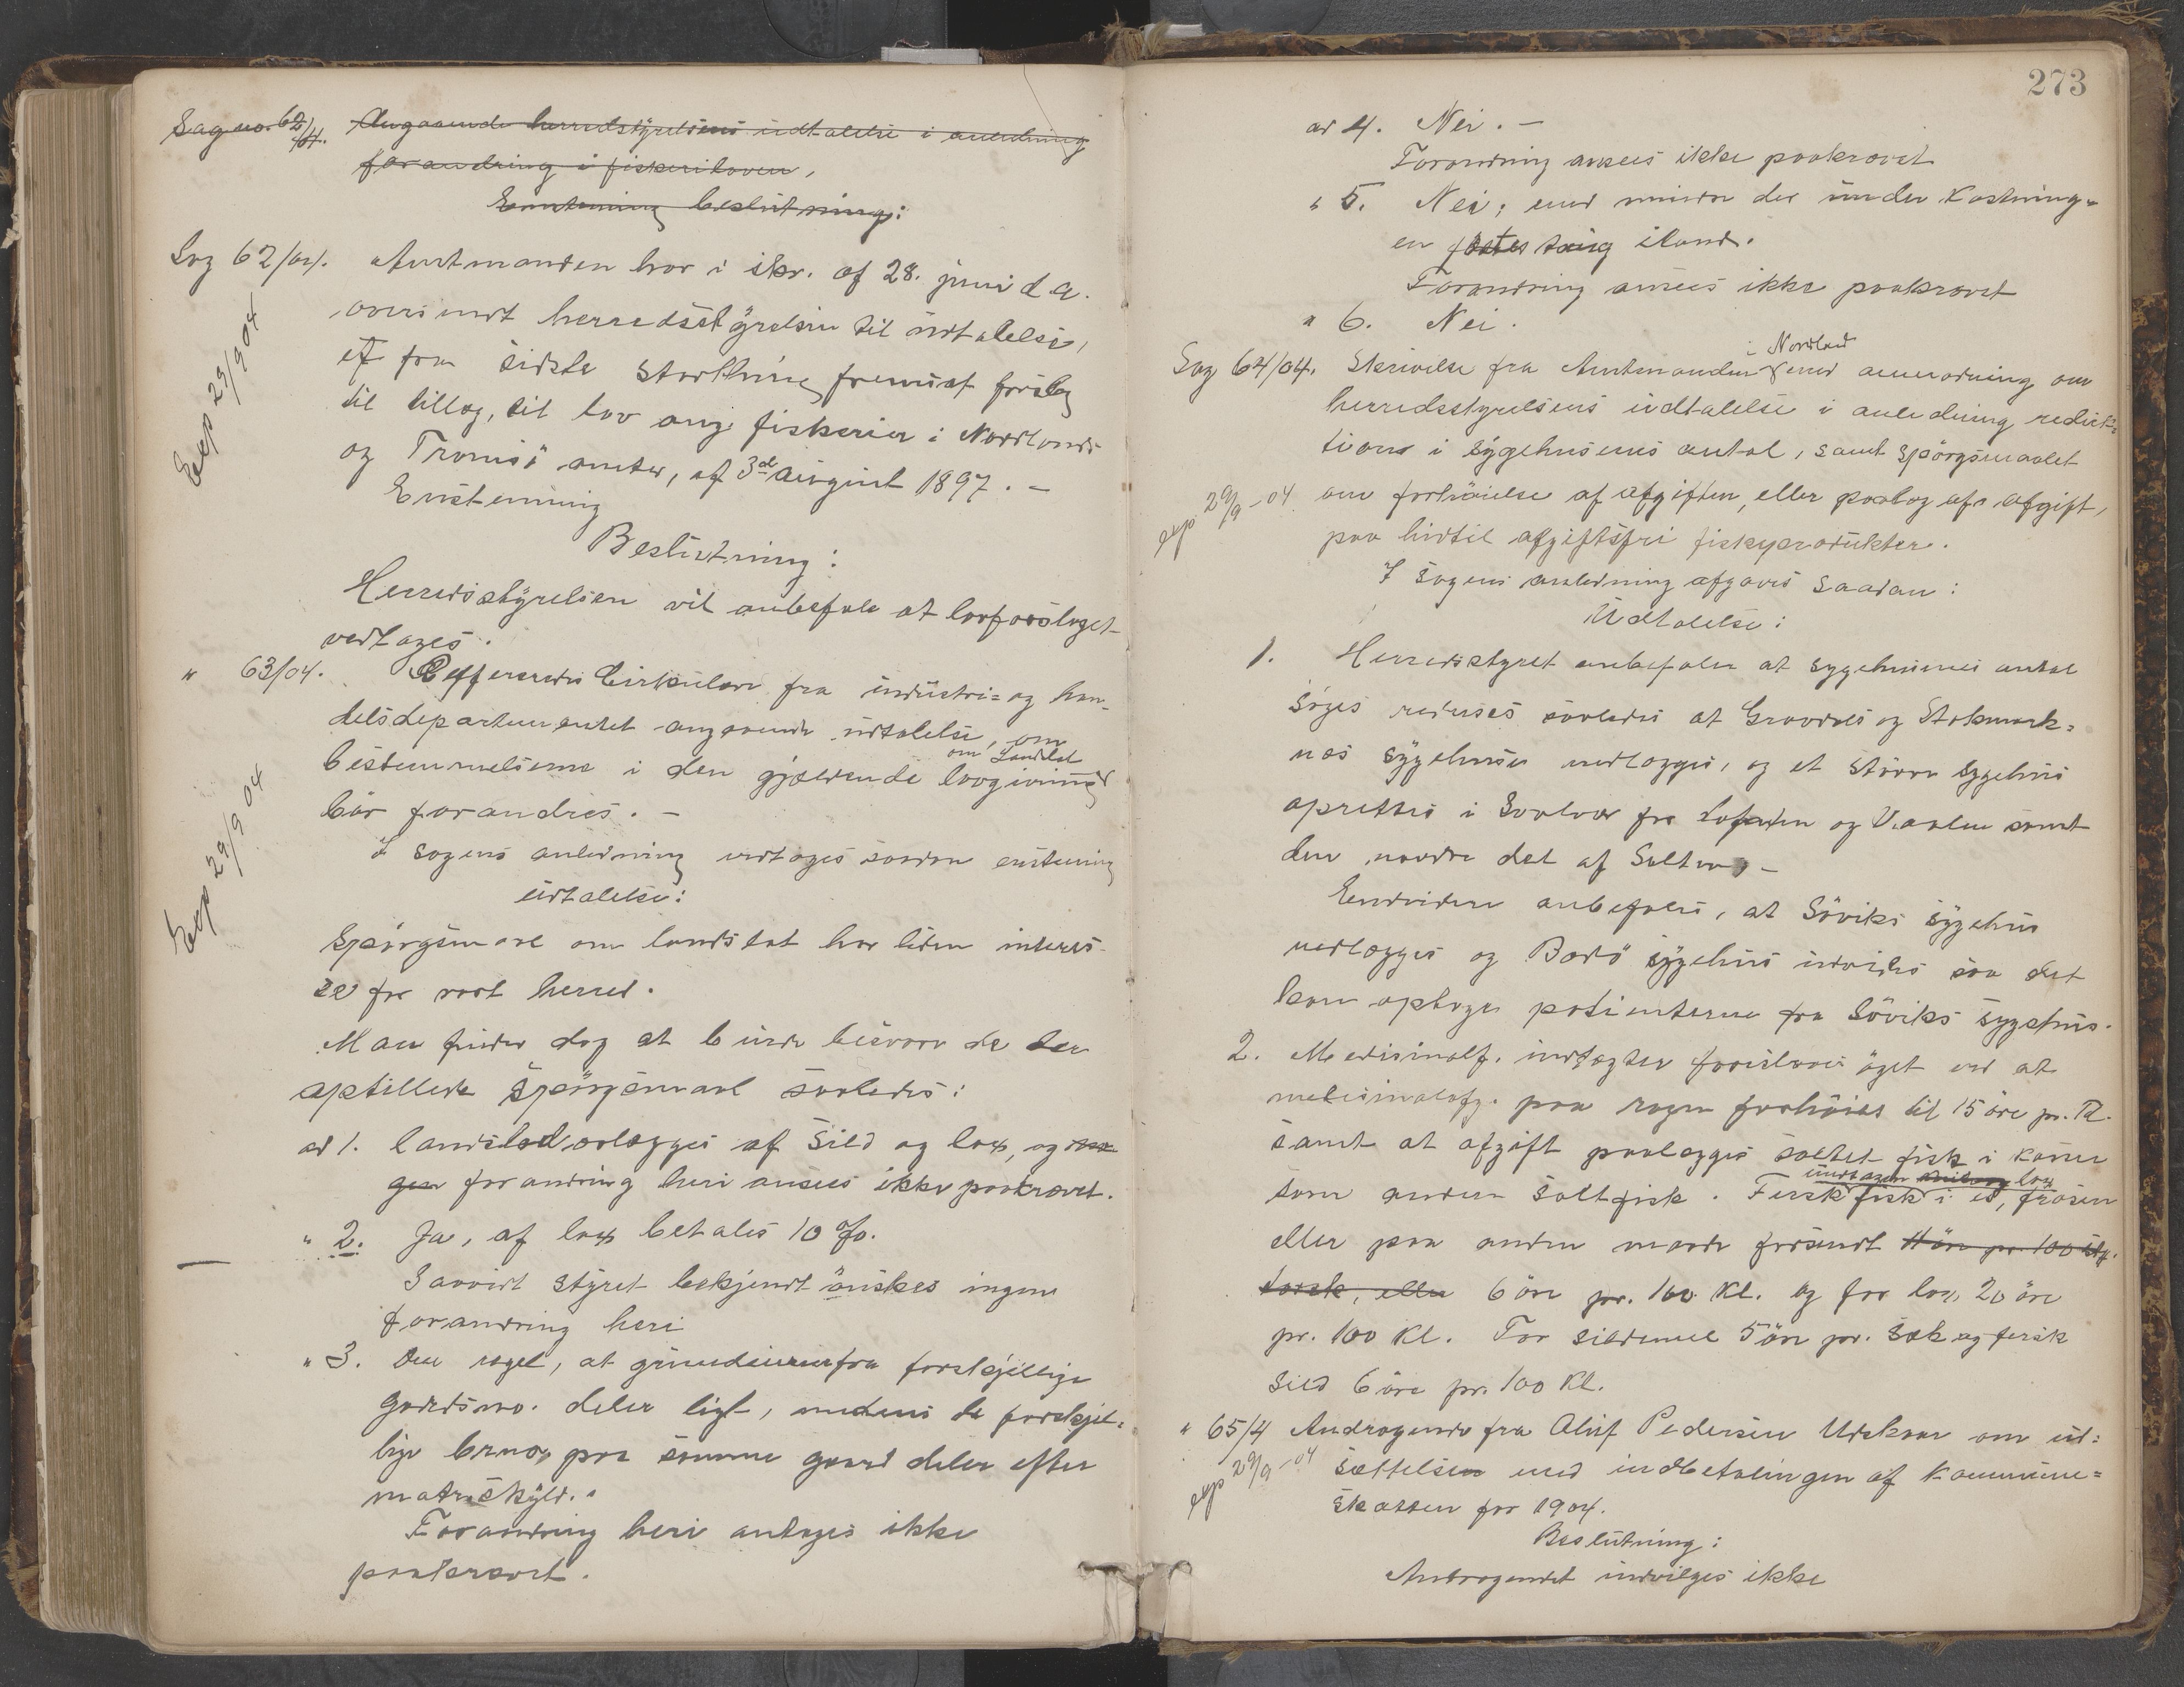 Sag no. 62/04. Angaaende herredstyrelsens udtalelse i anledning
forandring i fiskeriloven,
Enstemming beslutning:
Sag 62/04. Amtmanden har i skr. af 28. juni d. a.
oversendt herredsstyrelsen til udtalelse,
et fra sidste storthing fremsat forslag
til tillæg, til lov ang. fiskerier i Nordlands
og Tromsö amter, af 3d august 1897. –
Exp 29/9 04
Enstemmig
Beslutning:
Herredsstyrelsen vil anbefale at lovforslaget
vedtages.
" 63/04. Refereredes Cirkulære fra industri= og han-
delsdepartementet angaaende udtalelse, om
bestemmelserne om Landslod i den gjældende lovgivning
bör forandres. –
I sagens anledning vedtoges saadan enstemmig
udtalelse:
Exp 29/9 04
Spörgsmaal om landslot har liden interes-
se for vort herred.
Man finder dog at burde besvare de der
opstillede spörgsmaal saaledes:
ad 1. Landslod erlægges af sild og lax, og
forandring heri ansees ikke paakrævet.
" 2. Ja, af lax betales 10 %.
Saavidt styret bekjendt önskes ingen
forandring heri
" 3. Den regel, at grundeierne fra forskjellige
gaardsno. deler ligt, medens de forskjel=
lige brno, paa samme gaard deler efter
matr.skyld.
Forandring heri antages ikke
paakrævet.
273
ad 4. Nei. –
Forandring ansees ikke paakrævet
" 5. Nei, med mindre der under kastning=
en fæstes taug iland.
Forandring ansees ikke paakrævet
" 6. Nei.
Sag 64/04. Skrivelse fra Amtmanden i Nordland med anmodning om
herredsstyrelsens udtalelse i anledning reduk=
tion i sygehusenes antal, samt spörgsmaalet
exp 29/9 – 04 om forhöielse af afgiften, eller paalæg af afgift,
paa hidtil afgiftsfri fiskeprodukter.
I sagens anledning afgaves saadan:
Udtalelse:
1. Herredsstyret anbefaler at sygehusenes antal
söges reduses saaledes at Gravdals og Stokmark=
nes sygehuse nedlægges, og et större sygehus
oprettes i Svolvær for Lofoten og V.aalen samt
den nordre del af Salten. –
Endvidere anbefales, at Söviks sygehus
nedlægges og Bodö sygehus udvides saa det
kan optage patienterne fra Söviks sygehus.
2. Medisinalf. indtægter foreslaaes öget ved at
medisinalafg. paa rogn forhöies til 15 öre pr. Td.
samt at afgift paalægges saltet fisk i kasser
som anden saltfisk. Fersk fisk undtagen lax i is, frosen
eller paa anden maade forsendt 11 öre pr. 100 stk.
torsk, eller 6 öre pr. 100 Kl. og for lax, 20 öre
pr. 100 Kl. For sildemel 5 öre pr. sæk og fersk
sild 6 öre pr. 100 Kl.
" 65/4 Andragende fra Oluf Pedersen Urskar om ud=
exp 29/9 – 04 sættelse med indbetalingen af kommune=
skatten for 1904.
Beslutning:
Andragendet indvilges ikke